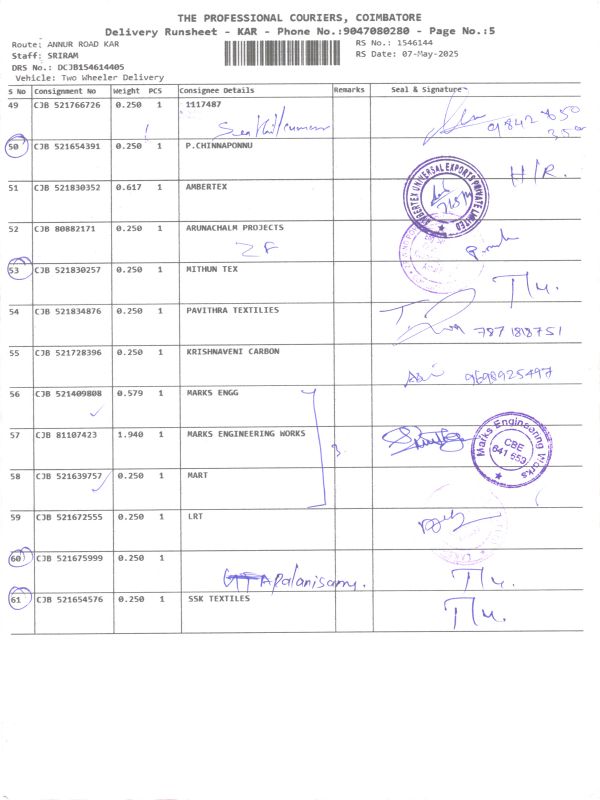 THE PROFESSIONAL COURIERS, COIMBATORE
Delivery Runsheet - KAR - Phone No.:9047080280 - Page No.:5
Route: ANNUR ROAD KAR
RS No.: 1546144
Staff: SRIRAM
RS Date: 07-May-2025
DRS No.: DCJB154614405
Vehicle: Two Wheeler Delivery
S No Consignment No Weight PCS Consignee Details Remarks Seal & Signature
49 CJB 521766726 0.250 1 1117487
50 CJB 521654391 0.250 1 P.CHINNAPONNU
H/R.
51 CJB 521830352 0.617 1 AMBERTEX
AMBERTEX UNIVERSAL EXPORTS PRIVATE LIMITED
52 CJB 80882171 0.250 1 ARUNACHALM PROJECTS
53 CJB 521830257 0.250 1 MITHUN TEX
54 CJB 521834876 0.250 1 PAVITHRA TEXTILIES
7871818751
55 CJB 521728396 0.250 1 KRISHNAVENI CARBON
9698925497
56 CJB 521409808 0.579 1 MARKS ENGG
57 CJB 81107423 1.940 1 MARKS ENGINEERING WORKS
3
Marks Engineering Works
CBE
641 653
58 CJB 521639757 0.250 1 MART
59 CJB 521672555 0.250 1 LRT
60 CJB 521675999 0.250 1
A Palanisamy.
61 CJB 521654576 0.250 1 SSK TEXTILES